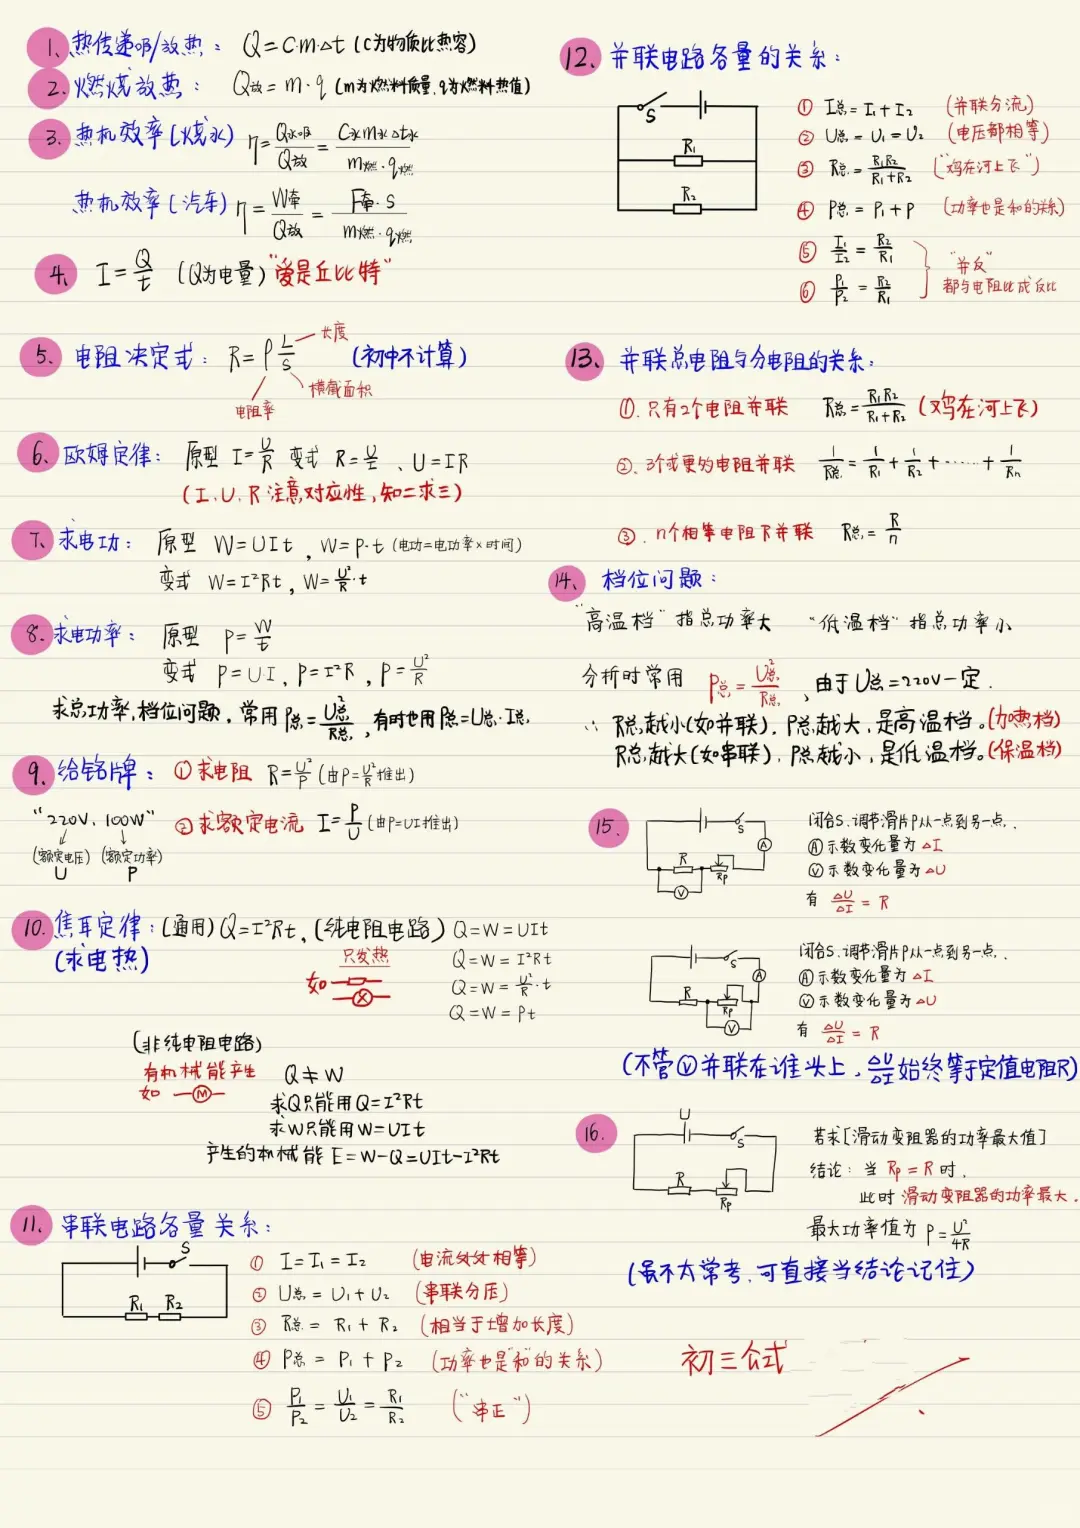 1、热传递吸/放热：Q=C·m·△t (C为物质比热容)
2、燃烧放热：Q放=m·q (m为燃料质量,q为燃料热值)
3、热机效率(烧水) η=Q水吸/Q放=C水m水△t水/m燃·q燃
热机效率(汽车) η=W牵/Q放=F牵·S/m燃·q燃
4、I=Q/t (Q为电量) "爱是丘比特"
5、电阻决定式：R=ρL/S (初中不计算)
长度
横截面积
电阻率
6、欧姆定律：原型 I=U/R 变式 R=U/I、U=IR
(I、U、R注意对应性,知二求三)
7、求电功：原型 W=UIt，W=P·t (电功=电功率×时间)
变式 W=I²Rt，W=U²/R·t
8、求电功率：原型 P=W/t
变式 P=UI，P=I²R，P=U²/R
求总功率,档位问题，常用P总=U总²/R总，有时也用P总=U总·I总.
9、给铭牌：①求电阻 R=U²/P (由P=U²/R推出)
"220V，100W" ②求额定电流 I=P/U (由P=UI推出)
(额定电压) (额定功率)
U P
10、焦耳定律：(通用)Q=I²Rt，(纯电阻电路) Q=W=UIt
(求电热) 只发热 Q=W=I²Rt
如 Q=W=U²/R·t
Q=W=Pt
(非纯电阻电路)
有机械能产生 Q≠W
如 M 求Q只能用Q=I²Rt
求W只能用W=UIt
产生的机械能 E=W-Q=UIt-I²Rt
11、串联电路各量关系：
S
R₁ R₂
① I=I₁=I₂ (电流处处相等)
② U总=U₁+U₂ (串联分压)
③ R总=R₁+R₂ (相当于增加长度)
④ P总=P₁+P₂ (功率也是"和"的关系)
⑤ P₁/P₂=U₁/U₂=R₁/R₂ ("串正")
12、并联电路各量的关系：
S
R₁
R₂
① I总=I₁+I₂ (并联分流)
② U总=U₁=U₂ (电压都相等)
③ R总=R₁R₂/R₁+R₂ ("鸡在河上飞")
④ P总=P₁+P (功率也是和的关系)
⑤ I₁/I₂=R₂/R₁
⑥ P₁/P₂=R₂/R₁
"并反"
都与电阻比成反比
13、并联总电阻与分电阻的关系：
①.只有2个电阻并联 R总=R₁R₂/R₁+R₂ (鸡在河上飞)
②.3个或更多电阻并联 1/R总=1/R₁+1/R₂+……+1/Rn
③.n个相等电阻R并联 R总=R/n
14、档位问题：
"高温档"指总功率大 "低温档"指总功率小
分析时常用 P总=U总²/R总，由于U总=220V一定.
∴ R总越小(如并联)，P总越大，是高温档。(加热档)
R总越大(如串联)，P总越小，是低温档。(保温档)
15、
S A R Rp V
闭合S、调节滑片P从一点到另一点.
Ⓐ示数变化量为△I
Ⓥ示数变化量为△U
有 △U/△I=R
S A R Rp V
闭合S、调节滑片P从一点到另一点.
Ⓐ示数变化量为△I
Ⓥ示数变化量为△U
有 △U/△I=R
(不管Ⓥ并联在谁头上，△U/△I始终等于定值电阻R)
16、
U S R Rp
若求[滑动变阻器的功率最大值]
结论：当 Rp=R时.
此时滑动变阻器的功率最大.
最大功率值为 P=U²/4R
(虽不太常考,可直接当结论记住)
初三公式